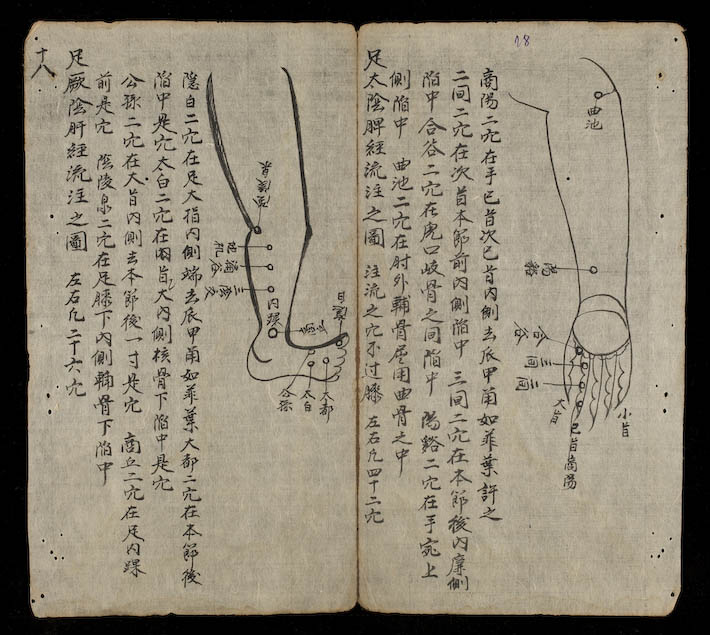 28
曲池
陽谿
合谷
三间
二间
大旨
巳旨商陽
小旨
商陽二穴在手巳旨次巳旨内側去爪甲甬如韮葉許之
二间二穴在次旨本節前内側陷中 三间二穴在本節後内廉側
陷中 合谷二穴在虎口岐骨之间陷中 陽谿二穴在手宛上
側陷中 曲池二穴在肘外輔骨屈用曲骨之中
足太陰脾經流注之圖 注流之穴不过膝 左右凢四十二穴
陰陵泉
地机
漏谷
三陰交
内踝
商丘
公孫
太白
大都
隱白
隱白二穴在足大指内側端去爪甲甬如韮葉大都二穴在本節後
陷中是穴太白二穴在兩旨大内側核骨下陷中是穴
公孫二穴在大旨内側去本節後一寸是穴 商丘二穴在足内踝
前是穴 陰陵泉二穴在足膝下内側輔骨下陷中
足厥陰肝經流注之圖 左右凢二十六穴
十八